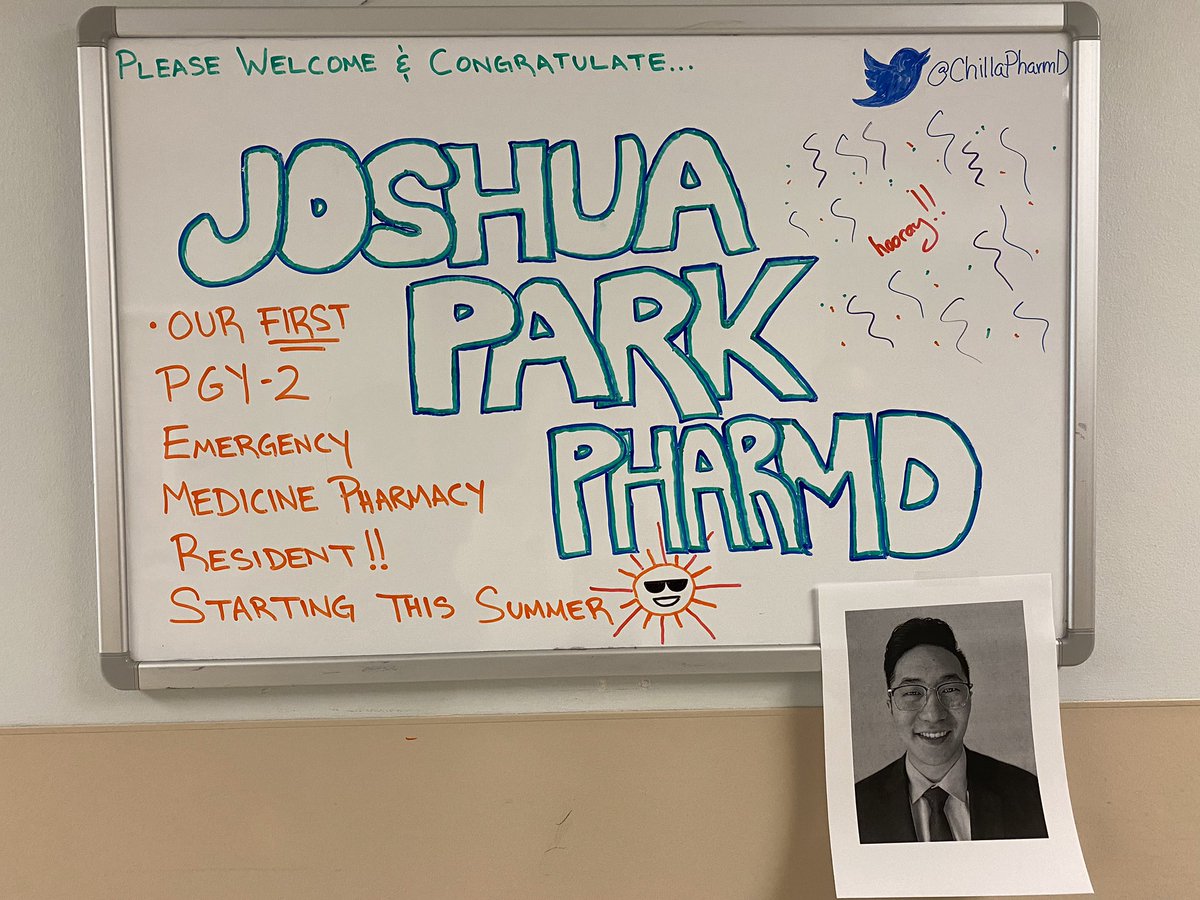 PLEASE WELCOME & CONGRATULATE...
@ChillaPharmD
JOSHUA
PARK
PHARMD
hooray!!
• OUR FIRST
PGY-2
EMERGENCY
MEDICINE PHARMACY
RESIDENT!!
STARTING THIS SUMMER